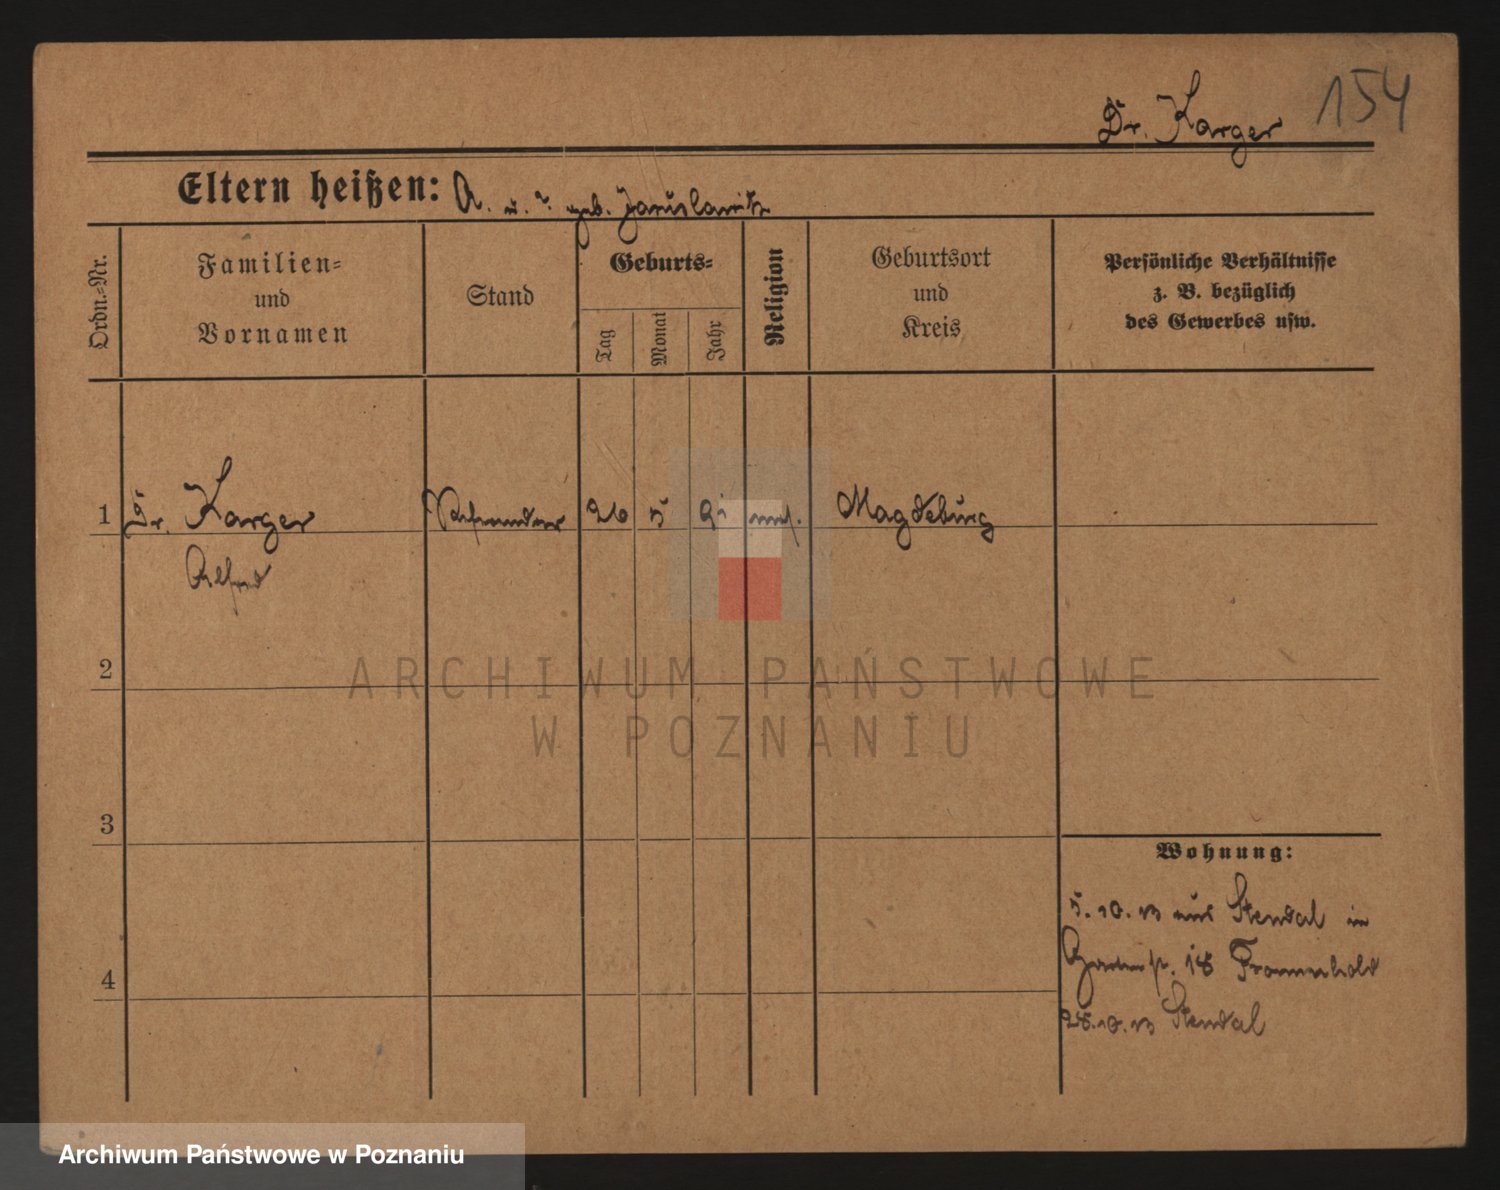 Dr. Karger 154
Eltern heißen: A. u. ? geb. Jaruslawitz
Ordn.=Nr.
Familien=
und
Vornamen
Stand
Geburts=
Tag
Monat
Jahr
Religion
Geburtsort
und
Kreis
Persönliche Verhältnisse
z. B. bezüglich
des Gewerbes usw.
1 Dr. Karger Referendar 26 5 91 mos. Magdeburg
Alfred
2
3
4
Wohnung:
5.10.13 aus Stendal in
18 Frommhold
28.10.13 Stendal
ARCHIWUM PAŃSTWOWE
W POZNANIU
Archiwum Państwowe w Poznaniu